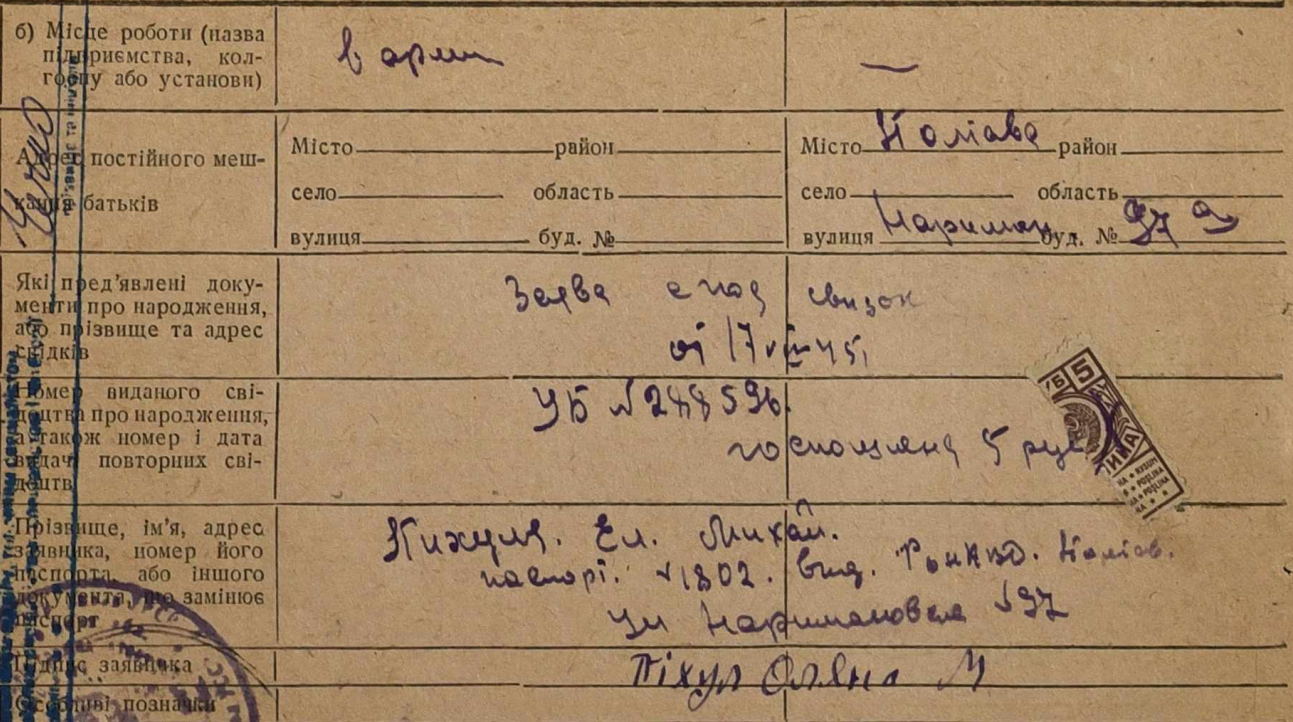 б) Місце роботи (назва
підприємства, кол-
госпу або установи)
в арми
—
Адрес постійного меш-
кання батьків
Місто район
село область
вулиця буд. №
Місто Полтава район
село область
вулиця Нариман буд. № 97 а
Які пред'явлені доку-
менти про народження,
або прізвище та адрес
свідків
Заява
от 17 45
Номер виданого сві-
доцтва про народження,
а також номер і дата
видачі повторних сві-
доцтв
УБ № 288596.
5
5 руб
Прізвище, ім'я, адрес
заявника, номер його
паспорта, або іншого
документа, що замінює
паспорт
Пихуля. Ел. Михай.
паспорт. №1802. Вид. НКВД. Полтав.
ул Наримановская №97
Підпис заявника
Піхул Оляна М
Особливі позначки